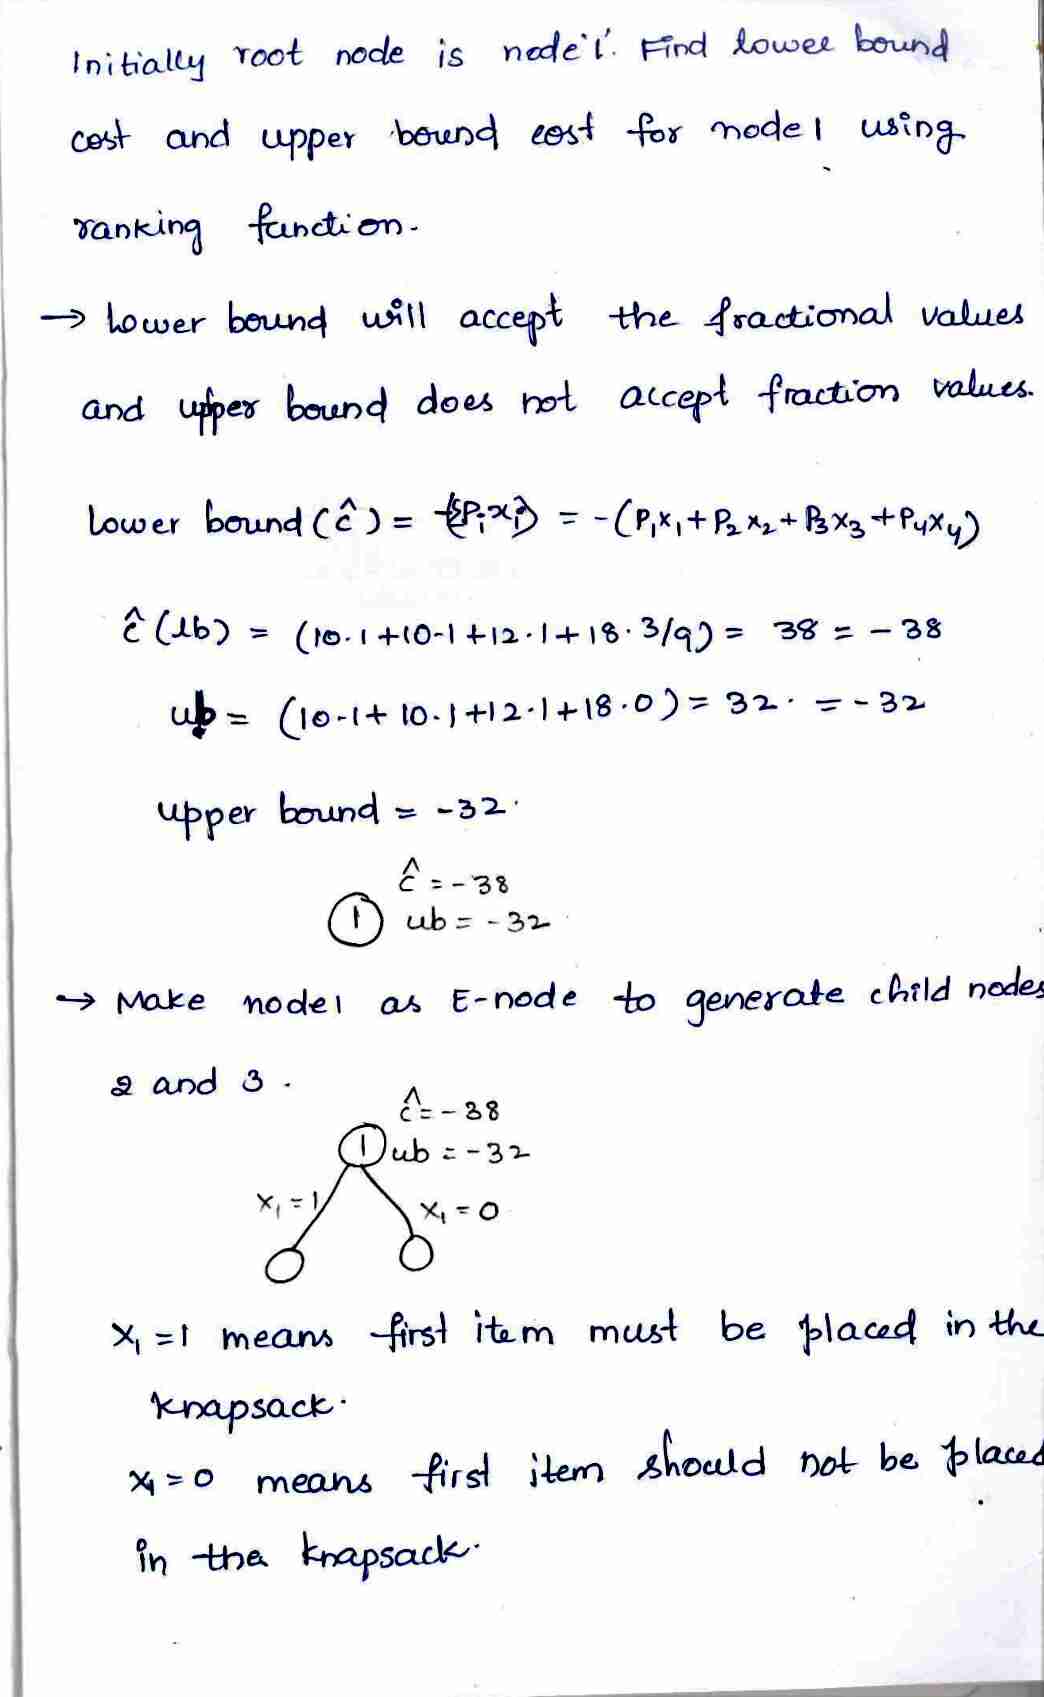 Initially root node is node '1'. Find lower bound
cost and upper bound cost for node 1 using
ranking function.
→ Lower bound will accept the fractional values
and upper bound does not accept fraction values.
Lower bound (ĉ) = -{ΣPᵢxᵢ} = -(P₁x₁ + P₂x₂ + P₃x₃ + P₄x₄)
ĉ (lb) = (10.1 + 10.1 + 12.1 + 18.3/9) = 38 = -38
ub = (10.1 + 10.1 + 12.1 + 18.0) = 32. = -32
upper bound = -32.
ĉ = -38
1 ub = -32
→ Make node 1 as E-node to generate child nodes
2 and 3.
ĉ = -38
1 ub = -32
x₁ = 1 x₁ = 0
x₁ = 1 means first item must be placed in the
knapsack.
x₁ = 0 means first item should not be placed
in the knapsack.